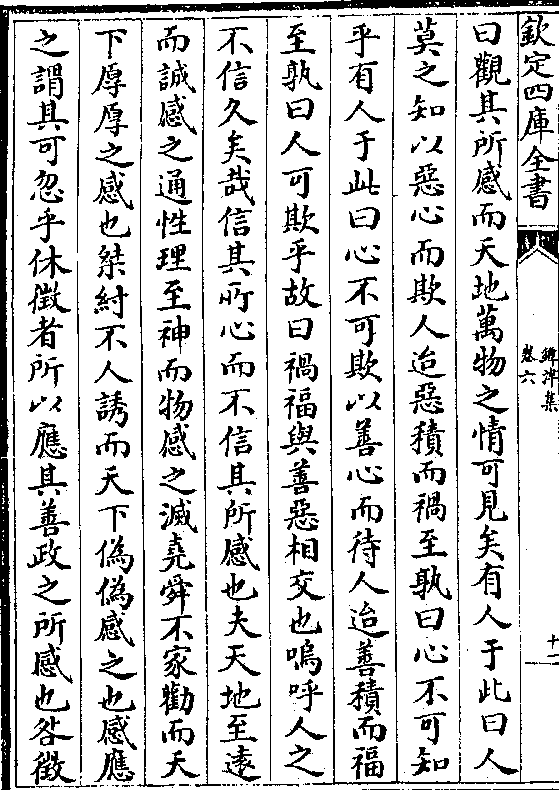 欽定四庫全書
鐔津集
卷六
十一
曰觀其所感而天地萬物之情可見矣有人于此曰人
莫之知以惡心而欺人迨惡積而禍至孰曰心不可知
乎有人于此曰心不可欺以善心而待人迨善積而福
至孰曰人可欺乎故曰禍福與善惡相交也嗚呼人之
不信久矣哉信其所心而不信其所感也夫天地至逺
而誠感之通性理至神而物感之滅堯舜不家勸而天
下厚厚之感也桀紂不人誘而天下偽偽感之也感應
之謂其可忽乎休徵者所以應其善政之所感也咎徵